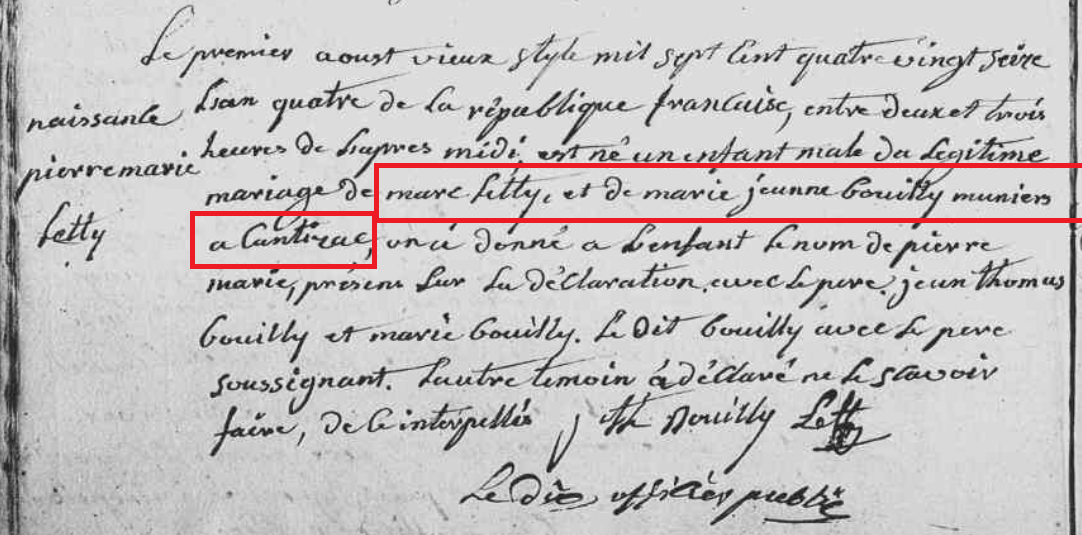 Le premier aoust vieux style mil sept Cent quatre vingt seize
naissance
Lan quatre de La république francaise, entre deux et trois
heures de Lapres midi, est né un enfant male du Legitime
pierre marie
mariage de marc Letty, et de marie jeanne bouilly muniers
Letty
a Cantizac, on a donné a Lenfant Le nom de pierre
marie, présens Sur La déclaration avec Le pere, jean thomas
bouilly et marie bouilly. Le dit bouilly avec Le pere
soussignant. Lautre temoin a déclaré ne Le scavoir
faire, de Ce interpellés Bouilly Letty
officier public